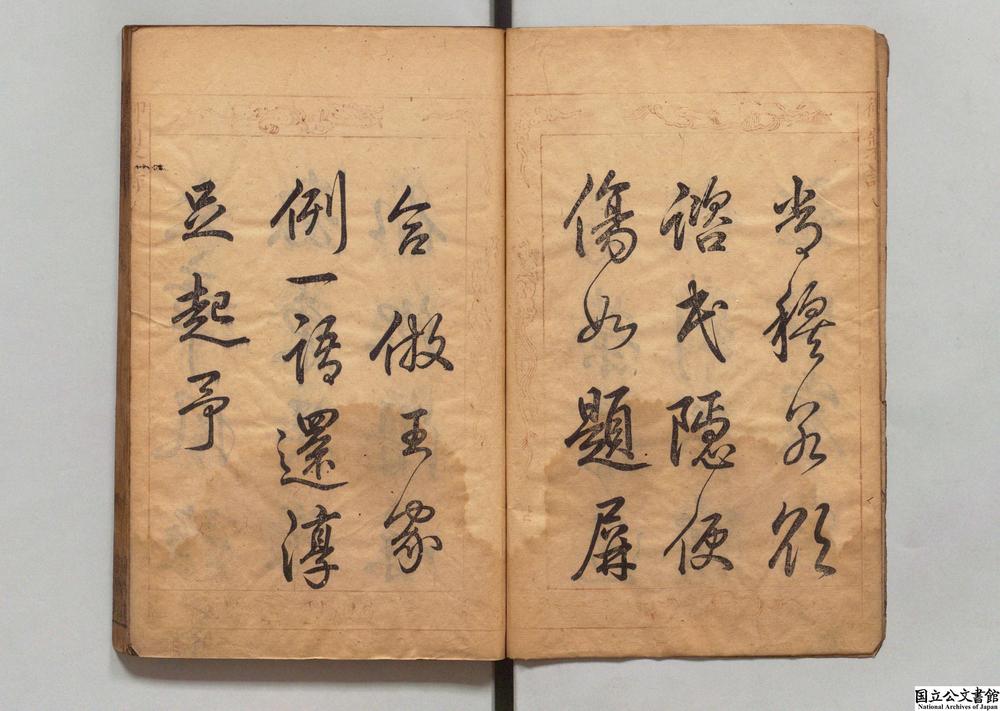 尚穆若欲
諮民隱便
傷如題屏
合倣王家
例一語還淳
足起予
国立公文書館
National Archives of Japan